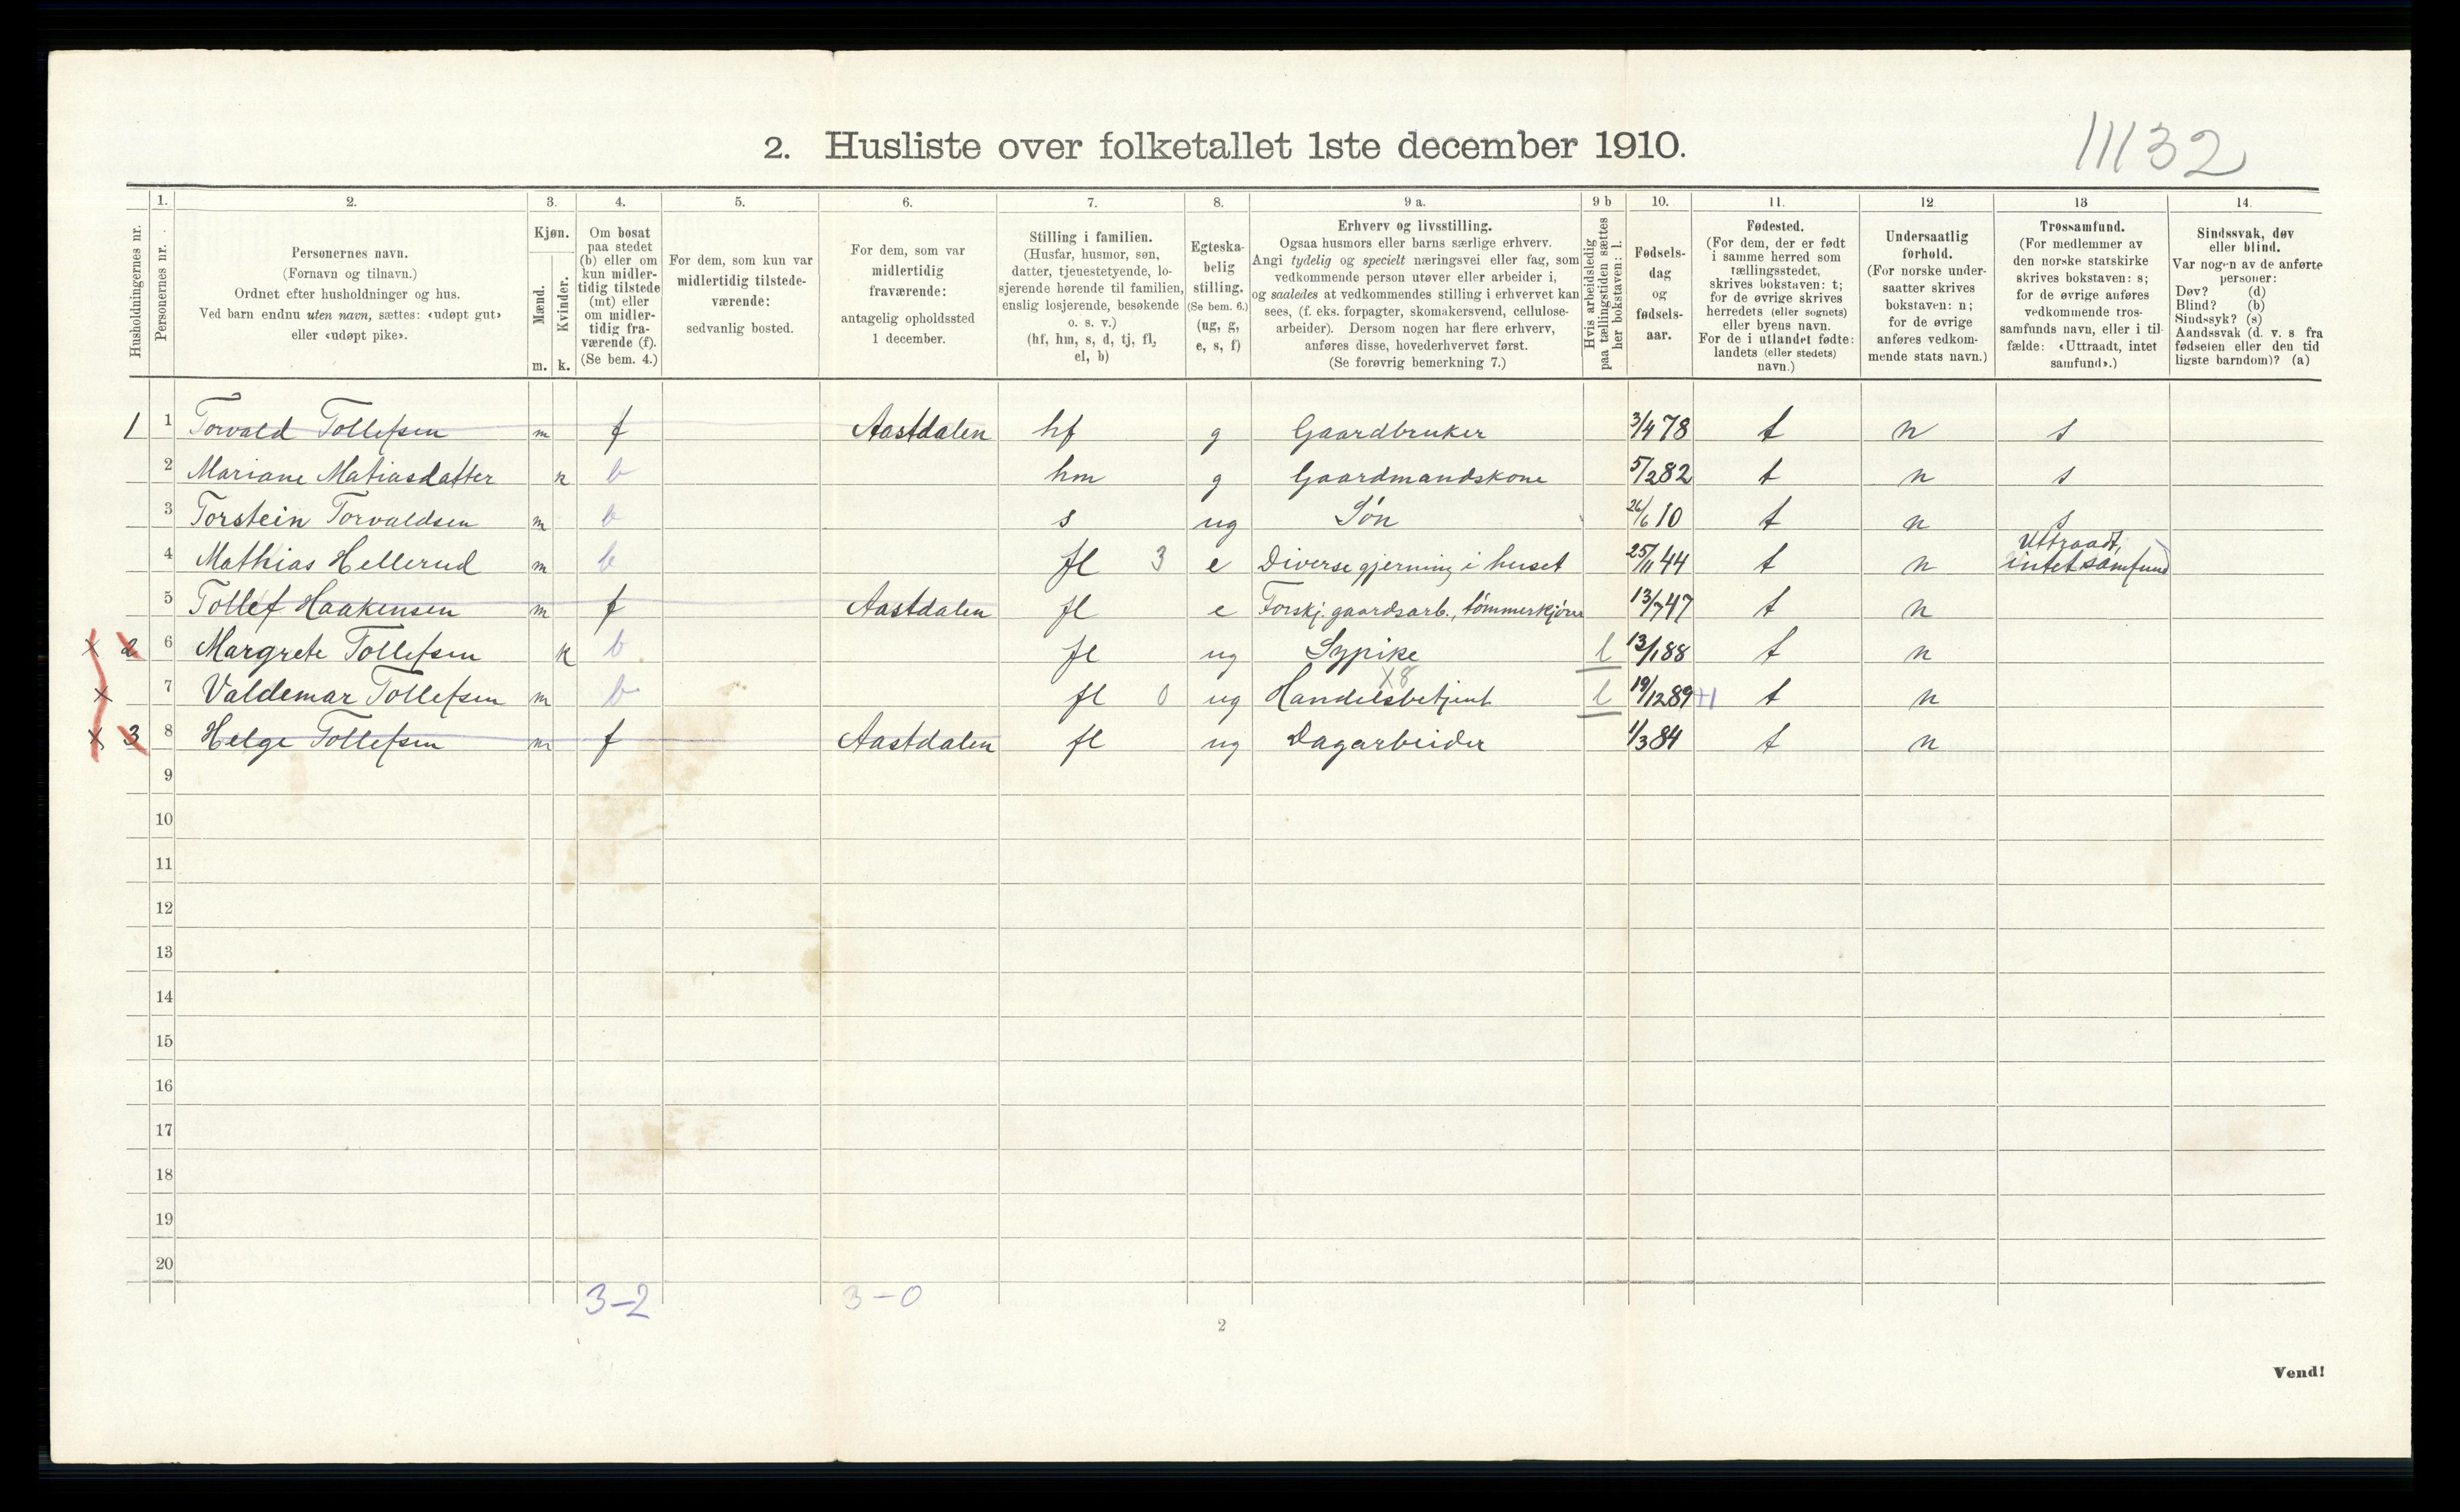 2. Husliste over folketallet 1ste december 1910.
11132
1. 2. 3. 4. 5. 6. 7. 8. 9 a. 9 b 10. 11. 12. 13 14.
Husholdningernes nr.
Personernes nr.
Personernes navn.
(Fornavn og tilnavn.)
Ordnet efter husholdninger og hus.
Ved barn endnu uten navn, sættes: «udøpt gut»
eller «udøpt pike».
Kjøn.
Mænd.
Kvinder.
m. k.
Om bosat
paa stedet
(b) eller om
kun midler-
tidig tilstede
(mt) eller
om midler-
tidig fra-
værende (f).
(Se bem. 4.)
For dem, som kun var
midlertidig tilstede-
værende:
sedvanlig bosted.
For dem, som var
midlertidig
fraværende:
antagelig opholdssted
1 december.
Stilling i familien.
(Husfar, husmor, søn,
datter, tjenestetyende, lo-
sjerende hørende til familien,
enslig losjerende, besøkende
o. s. v.)
(hf, hm, s, d, tj, fl,
el, b)
Egteska-
belig
stilling.
(Se bem. 6.)
(ug, g,
e, s, f)
Erhverv og livsstilling.
Ogsaa husmors eller barns særlige erhverv.
Angi tydelig og specielt næringsvei eller fag, som
vedkommende person utøver eller arbeider i,
og saaledes at vedkommendes stilling i erhvervet kan
sees, (f. eks. forpagter, skomakersvend, cellulose-
arbeider). Dersom nogen har flere erhverv,
anføres disse, hovederhvervet først.
(Se forøvrig bemerkning 7.)
Hvis arbeidsledig
paa tællingstiden sættes
her bokstaven: l.
Fødsels-
dag
og
fødsels-
aar.
Fødested.
(For dem, der er født
i samme herred som
tællingsstedet,
skrives bokstaven: t;
for de øvrige skrives
herredets (eller sognets)
eller byens navn.
For de i utlandet fødte:
landets (eller stedets)
navn.)
Undersaatlig
forhold.
(For norske under-
saatter skrives
bokstaven: n;
for de øvrige
anføres vedkom-
mende stats navn.)
Trossamfund.
(For medlemmer av
den norske statskirke
skrives bokstaven: s;
for de øvrige anføres
vedkommende tros-
samfunds navn, eller i til-
fælde: «Uttraadt, intet
samfund».)
Sindssvak, døv
eller blind.
Var nogen av de anførte
personer:
Døv? (d)
Blind? (b)
Sindssyk? (s)
Aandssvak (d. v. s fra
fødselen eller den tid
ligste barndom)? (a)
1 1 Torvald Tollefsen m f Aastdalen hf g Gaardbruker 3/4 78 t n s
2 Mariane Matiasdatter k b hm g Gaardmandskone 5/2 82 t n s
3 Torstein Torvaldsen m b s ug Søn 26/6 10 t n s
4 Mathias Hellerud m b fl 3 e Diverse gjerning i huset 25/11 44 t n Uttraadt, intet samfund
5 Tollef Haakensen m f Aastdalen fl e Forskj. gaardsarb., tømmerkjører 13/7 47 t n
x 2 6 Margrete Tollefsen k b fl ug Sypike l 13/1 88 t n
x 7 Valdemar Tollefsen m b fl 0 ug Handelsbetjent x8 l 19/12 89 +1 t n
x 3 8 Helge Tollefsen m f Aastdalen fl ug Dagarbeider 1/3 84 t n
9
10
11
12
13
14
15
16
17
18
19
20
3-2 3-0
2
Vend!